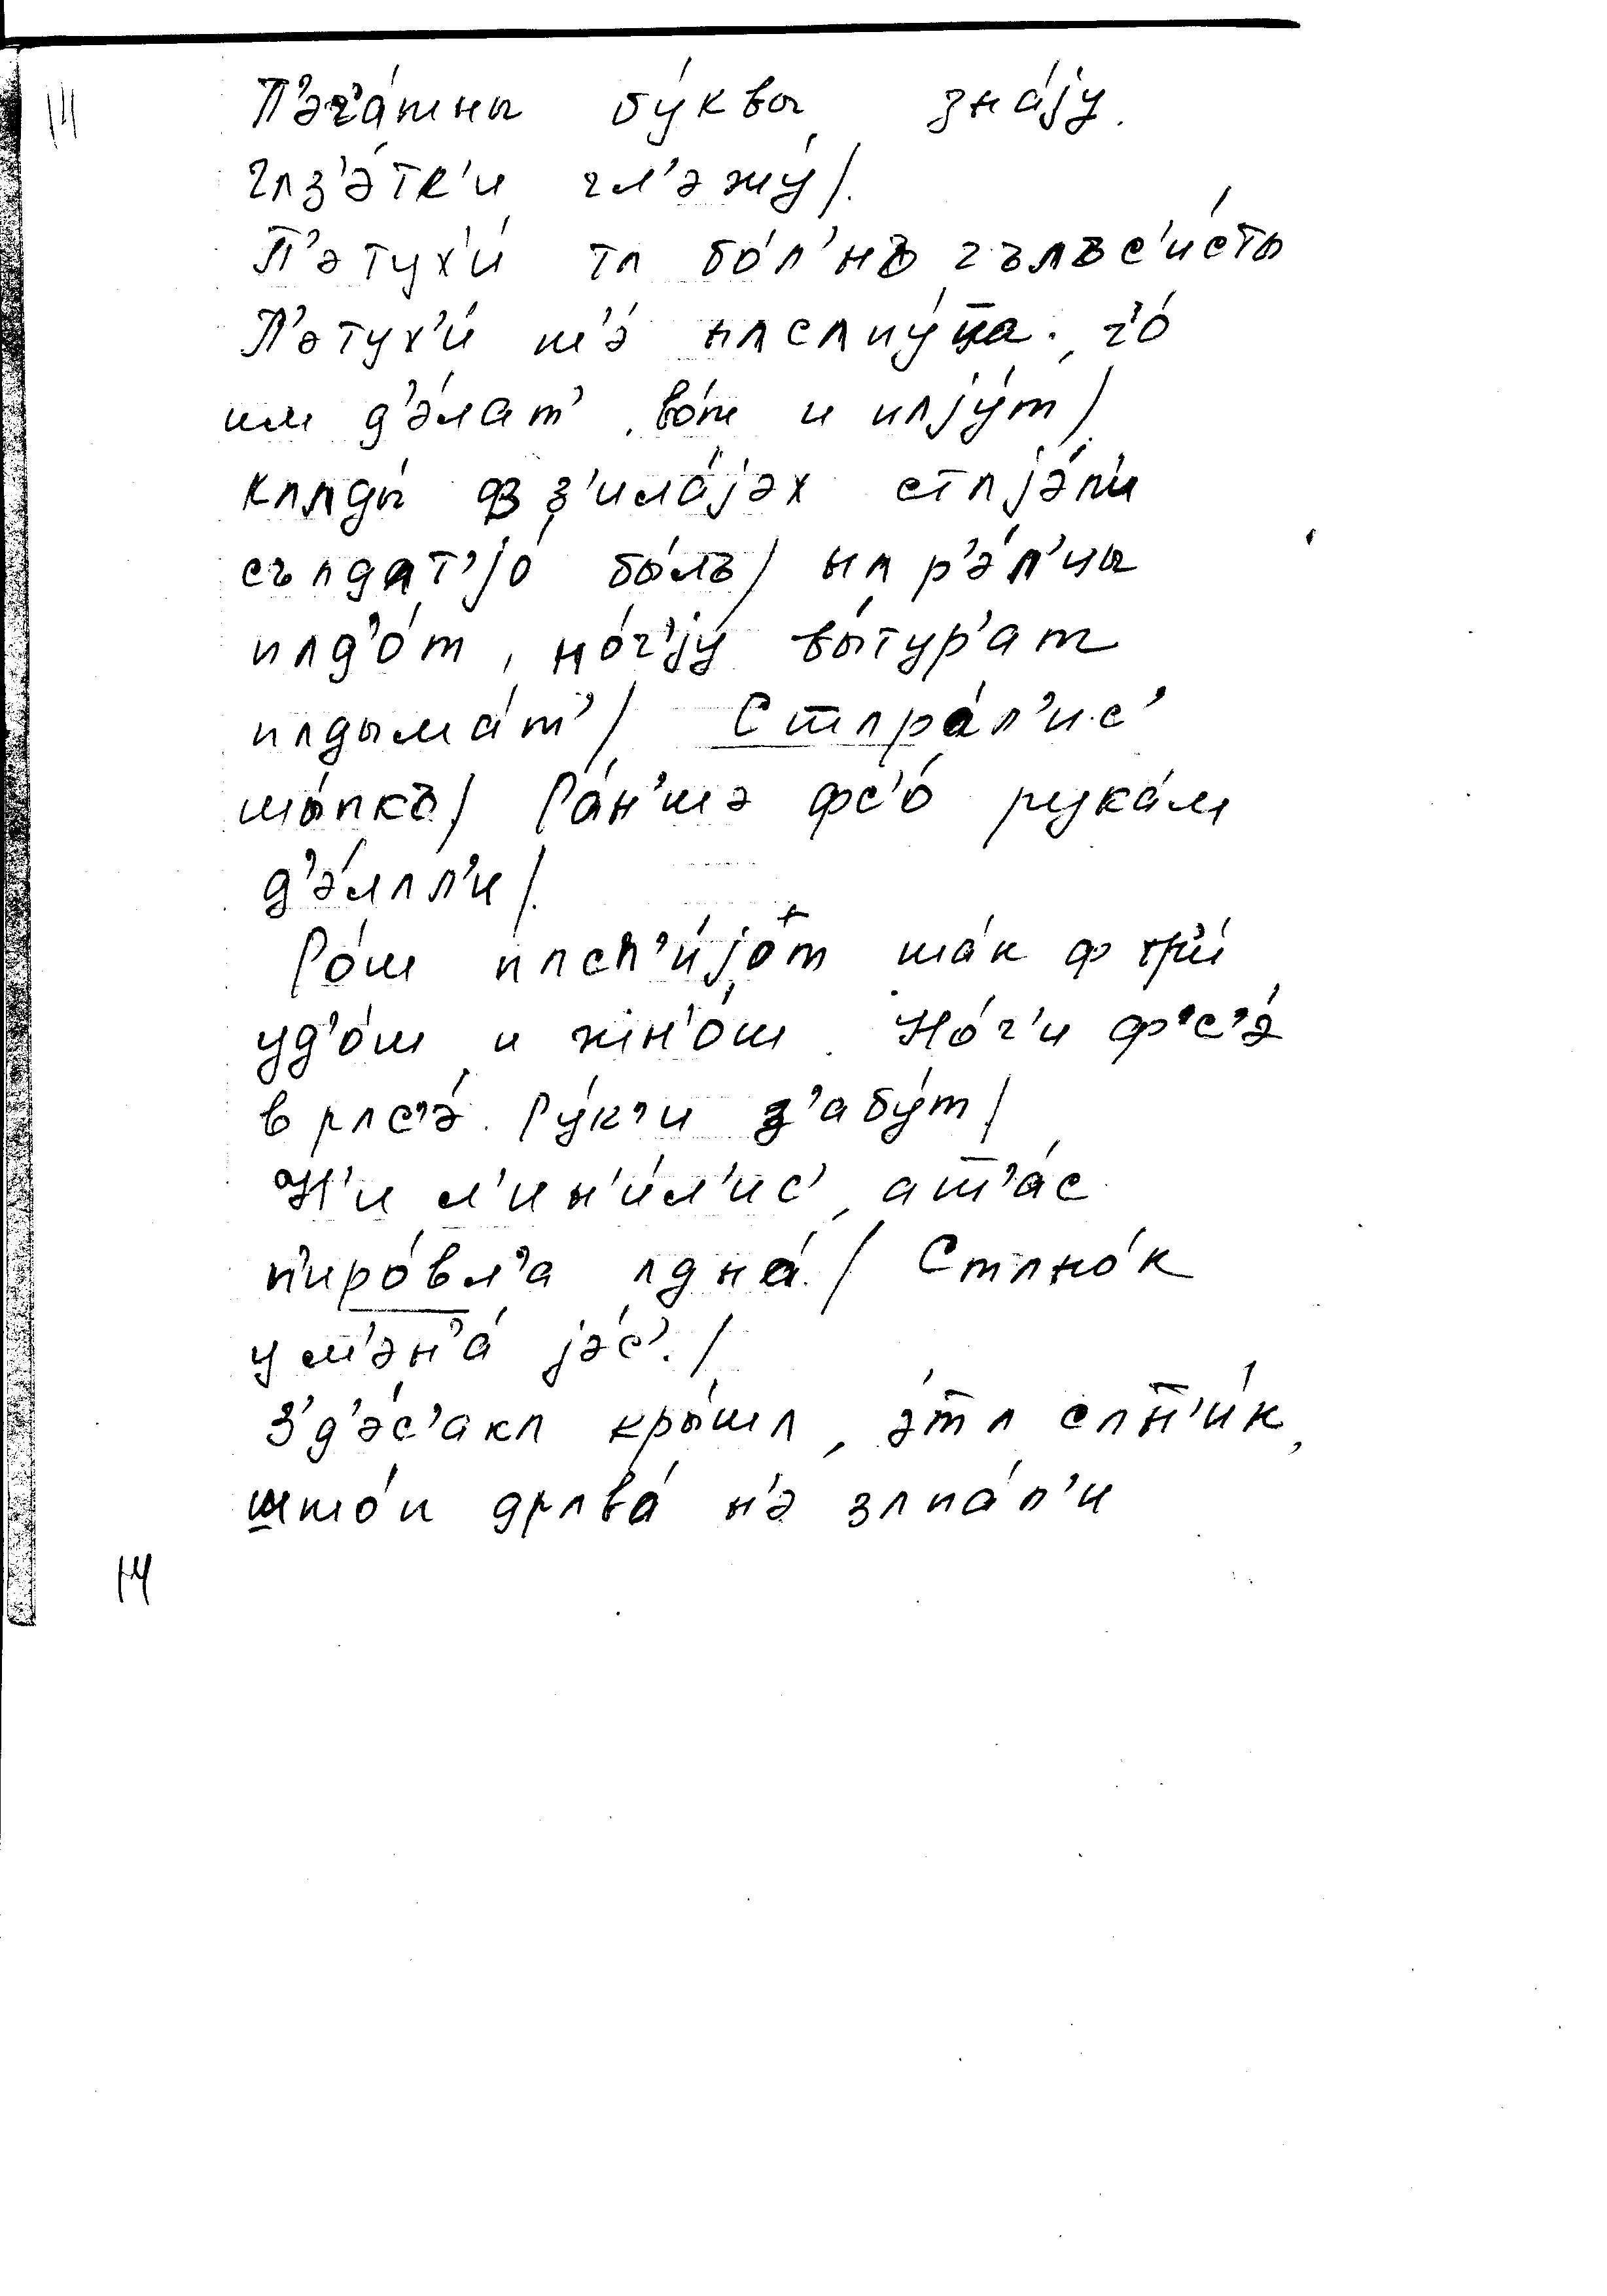 П'эч'а́тны бу́квы зна́jу.
гʌз'э́тк'и гл'эжу́/.
П'этух'и́ тʌ бо́л'нъ гълъс'и́сты
П'этух'и́ н'э́ нʌсʌпу́ца., ч'о́
им д'э́лат', во́т и пʌjу́т/
кʌгды́ в з'има́jэх стʌjа́л'и
сълдат'jо́ бы́лъ/ на р'э́л'цы
пʌд'о́т, но́ч'jу вы́тур'ат
пʌдыма́т'/ Стʌра́л'ис'
шы́пкъ/ Ра́н'шэ фс'о́ рука́м
д'э́лʌл'и/.
Ро́ш пʌсп'и́jо́т та́к ф тр'и́
уд'о́ш и жн'о́ш. Но́г'и ф'с'э́
в рʌс'э́. Ру́к'и з'абу́т/
Н'и л'ин'и́л'ис', ат'а́с
п'иро́вл'а ʌдна́./ Стʌно́к
у м'эн'а́ jэ́с'./
З'д'э́с'акʌ кры́шʌ, э́тʌ сʌн'и́к,
што́п дрʌва́ н'э зʌпа́л'и
14